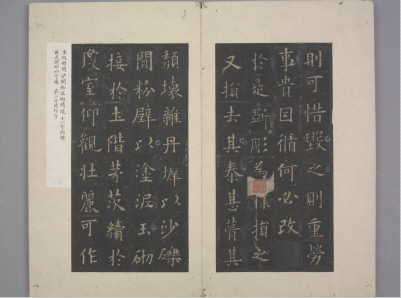 則可惜毀之則重勞
事貴因循何必改
於是斲彫為樸損之
又損去其泰甚葺其
頹壞雜丹墀以沙礫
間粉壁以塗泥玉砌
接於土階茅茨續於
瓊室仰觀壯麗可作